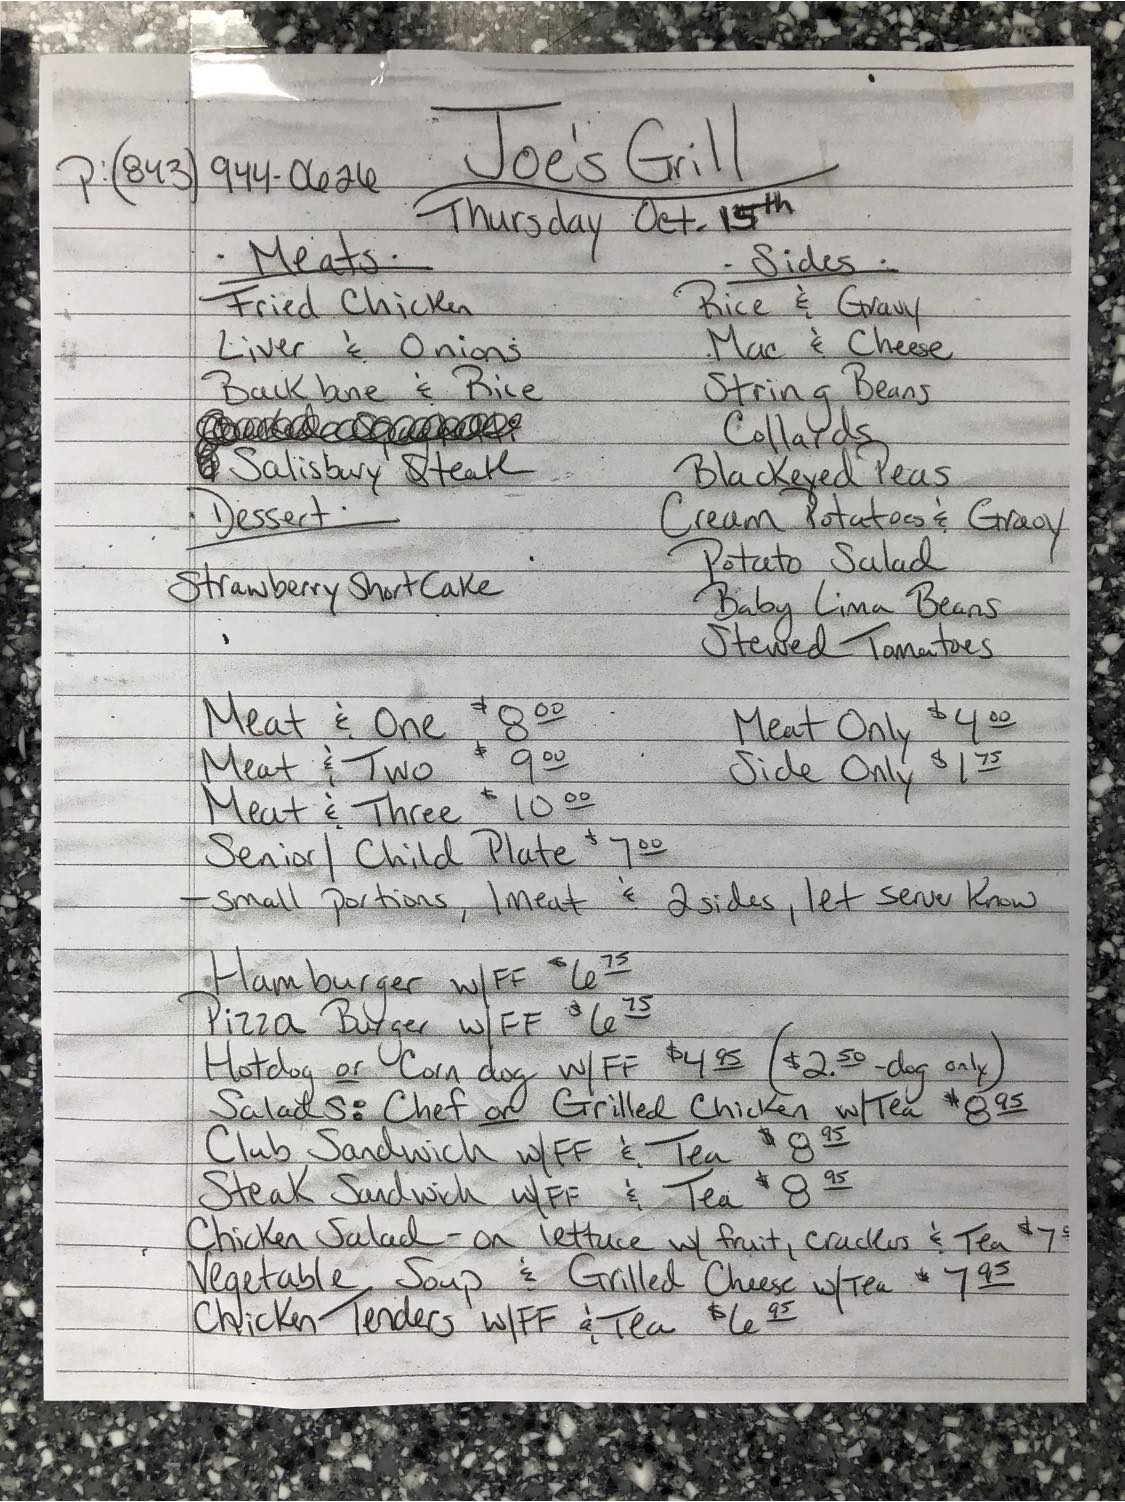 Joe's Grill
P: (843) 944-0626
Thursday Oct. 15th
· Meats ·
Fried Chicken
Liver & Onions
Backbone & Rice
Salisbury Steak
· Dessert ·
Strawberry ShortCake
· Sides ·
Rice & Gravy
Mac & Cheese
String Beans
Collards
Blackeyed Peas
Cream Potatoes & Gravy
Potato Salad
Baby Lima Beans
Stewed Tomatoes
Meat & One $8.00
Meat & Two $9.00
Meat & Three $10.00
Meat Only $4.00
Side Only $1.75
Senior/Child Plate $7.00
- small portions, 1 meat & 2 sides, let server know
Hamburger w/FF $6.75
Pizza Burger w/FF $6.75
Hotdog or Corn dog w/FF $4.95 ($2.50 - dog only)
Salads: Chef or Grilled Chicken w/Tea $8.95
Club Sandwich w/FF & Tea $8.95
Steak Sandwich w/FF & Tea $8.95
Chicken Salad - on lettuce w/ fruit, crackers & Tea $7
Vegetable Soup & Grilled Cheese w/Tea $7.95
Chicken Tenders w/FF & Tea $6.95